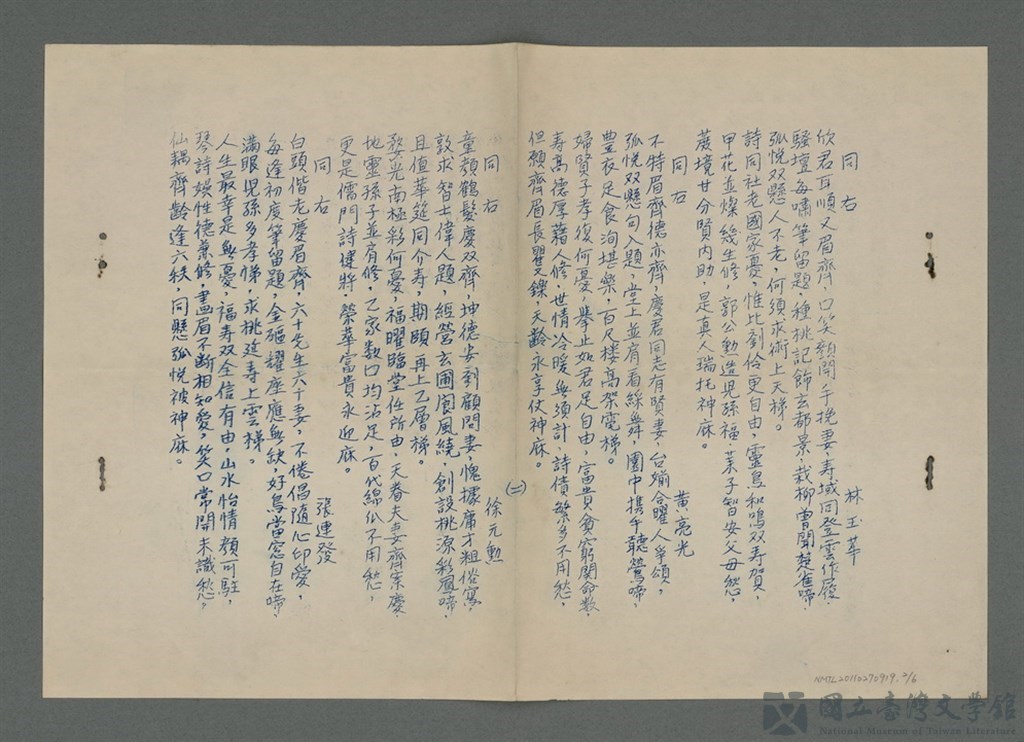 同右　林玉華
欣君耳順又眉齊，口笑顏開手挽妻，寿域同登雲作履，
騷壇每嘯筆留題，種桃記飾玄都景，栽柳曾聞楚雀啼，
弧悅双懸人不老，何須求術上天梯。
詩同社老國家憂，惟比劉伶更自由，靈鳥和鳴双寿賀，
甲花並燦幾生修，郭公勳造児孫福，萊子智安父母愁，
蔗境甘分賢內助，是真人瑞托神庥。
同右　黃亮光
不特眉齊德亦齊，慶君同志有賢妻，台鄉合曜人爭頌，
弧悅双懸句入題，堂上並肩看綵舞，園中携手聽鶯啼，
豐衣足食洵堪樂，百尺楼高架電梯。
婦賢子孝復何憂，舉止如君足自由，富貴貧窮關命數，
寿高德厚藉人修，世情冷暖無須計，詩債繁多不用愁，
但願齊眉長矍鑠，天齡永享仗神庥。
(二)
同右　徐元勲
童顏鶴髮慶双齊，坤德安到顧問妻，愧據庸才粗俗寫，
敦求智士偉人題，經營玄圃閬風繞，創設桃源彩鳳啼，
且值華筵同介寿，期頤再上乙層梯。
婺光南極彩何憂，福曜臨堂任所由，天眷夫妻齊宗慶，
地靈孫子並肩修，乙家数口均沾足，百代綿瓜不用愁，
更是儒門詩健將，榮華富貴永迎庥。
同右　張連發
白頭偕老慶眉齊，六十先生六十妻，不倦倡随心印愛，
每逢初度筆留題，金礶耀座應無缺，好鳥當窓自在啼，
滿眼児孫多孝悌，求桃延寿上雲梯。
人生最幸是無憂，福寿双全信有由，山水怡情顏可駐，
琴詩娛性德兼修，畫眉不断相知愛，笑口常開未識愁，
仙耦齊齡逢六秩，同懸弧悅被神庥。
NMTL20110270919. 2/6
國立臺灣文學館
National Museum of Taiwan Literature